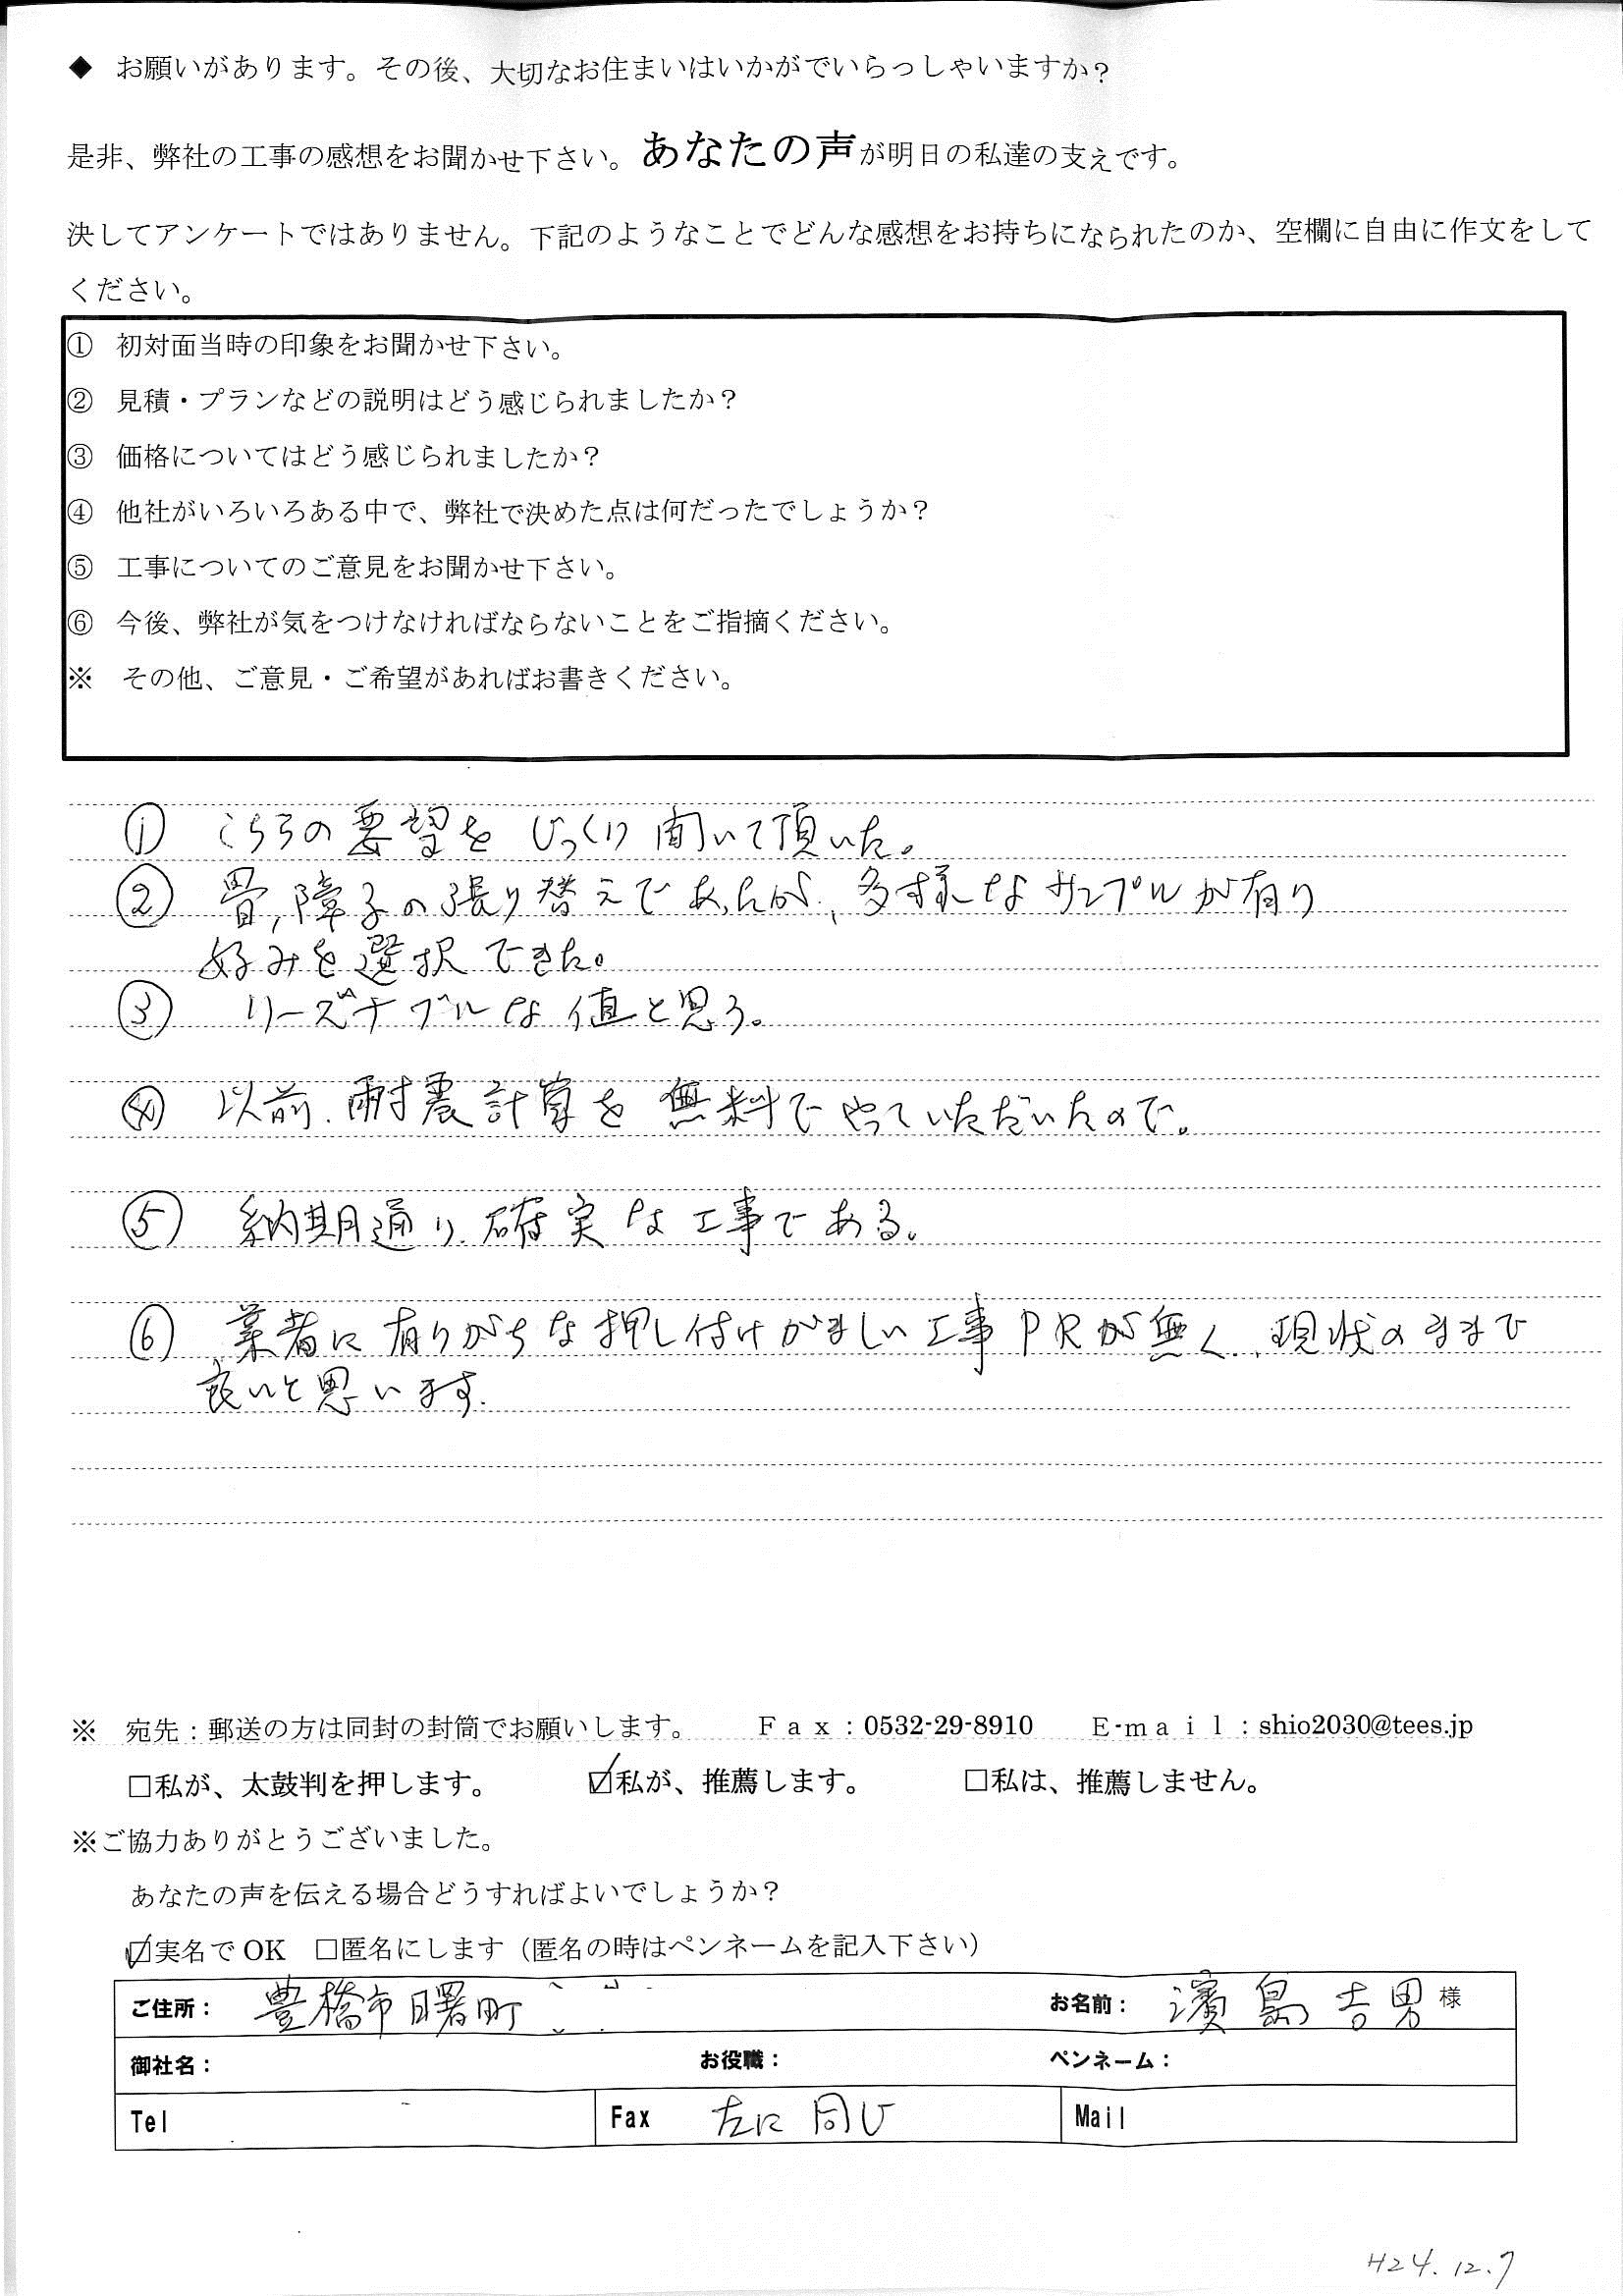 ◆ お願いがあります。その後、大切なお住まいはいかがでいらっしゃいますか？
是非、弊社の工事の感想をお聞かせ下さい。あなたの声が明日の私達の支えです。
決してアンケートではありません。下記のようなことでどんな感想をお持ちになられたのか、空欄に自由に作文をして
ください。
① 初対面当時の印象をお聞かせ下さい。
② 見積・プランなどの説明はどう感じられましたか？
③ 価格についてはどう感じられましたか？
④ 他社がいろいろある中で、弊社で決めた点は何だったでしょうか？
⑤ 工事についてのご意見をお聞かせ下さい。
⑥ 今後、弊社が気をつけなければならないことをご指摘ください。
※ その他、ご意見・ご希望があればお書きください。
① こちらの要望をじっくり聞いて頂いた。
② 畳,障子の張り替えであったが、多様なサンプルが有り
好みを選択できた。
③ リーズナブルな値と思う。
④ 以前、耐震計算を無料でやっていただいたので。
⑤ 納期通り、確実な工事である。
⑥ 業者に有りがちな押し付けがましい工事PRが無く、現状のままで
良いと思います.
※ 宛先：郵送の方は同封の封筒でお願いします。 Ｆａｘ：0532-29-8910 Ｅ-ｍａｉｌ：shio2030@tees.jp
□私が、太鼓判を押します。 ☑私が、推薦します。 □私は、推薦しません。
※ご協力ありがとうございました。
あなたの声を伝える場合どうすればよいでしょうか？
☑実名で OK □匿名にします（匿名の時はペンネームを記入下さい）
ご住所： 豊橋市曙町 お名前： 濱島吉男 様
御社名： お役職： ペンネーム：
Tel Fax 左に同じ Mail
H24.12.7